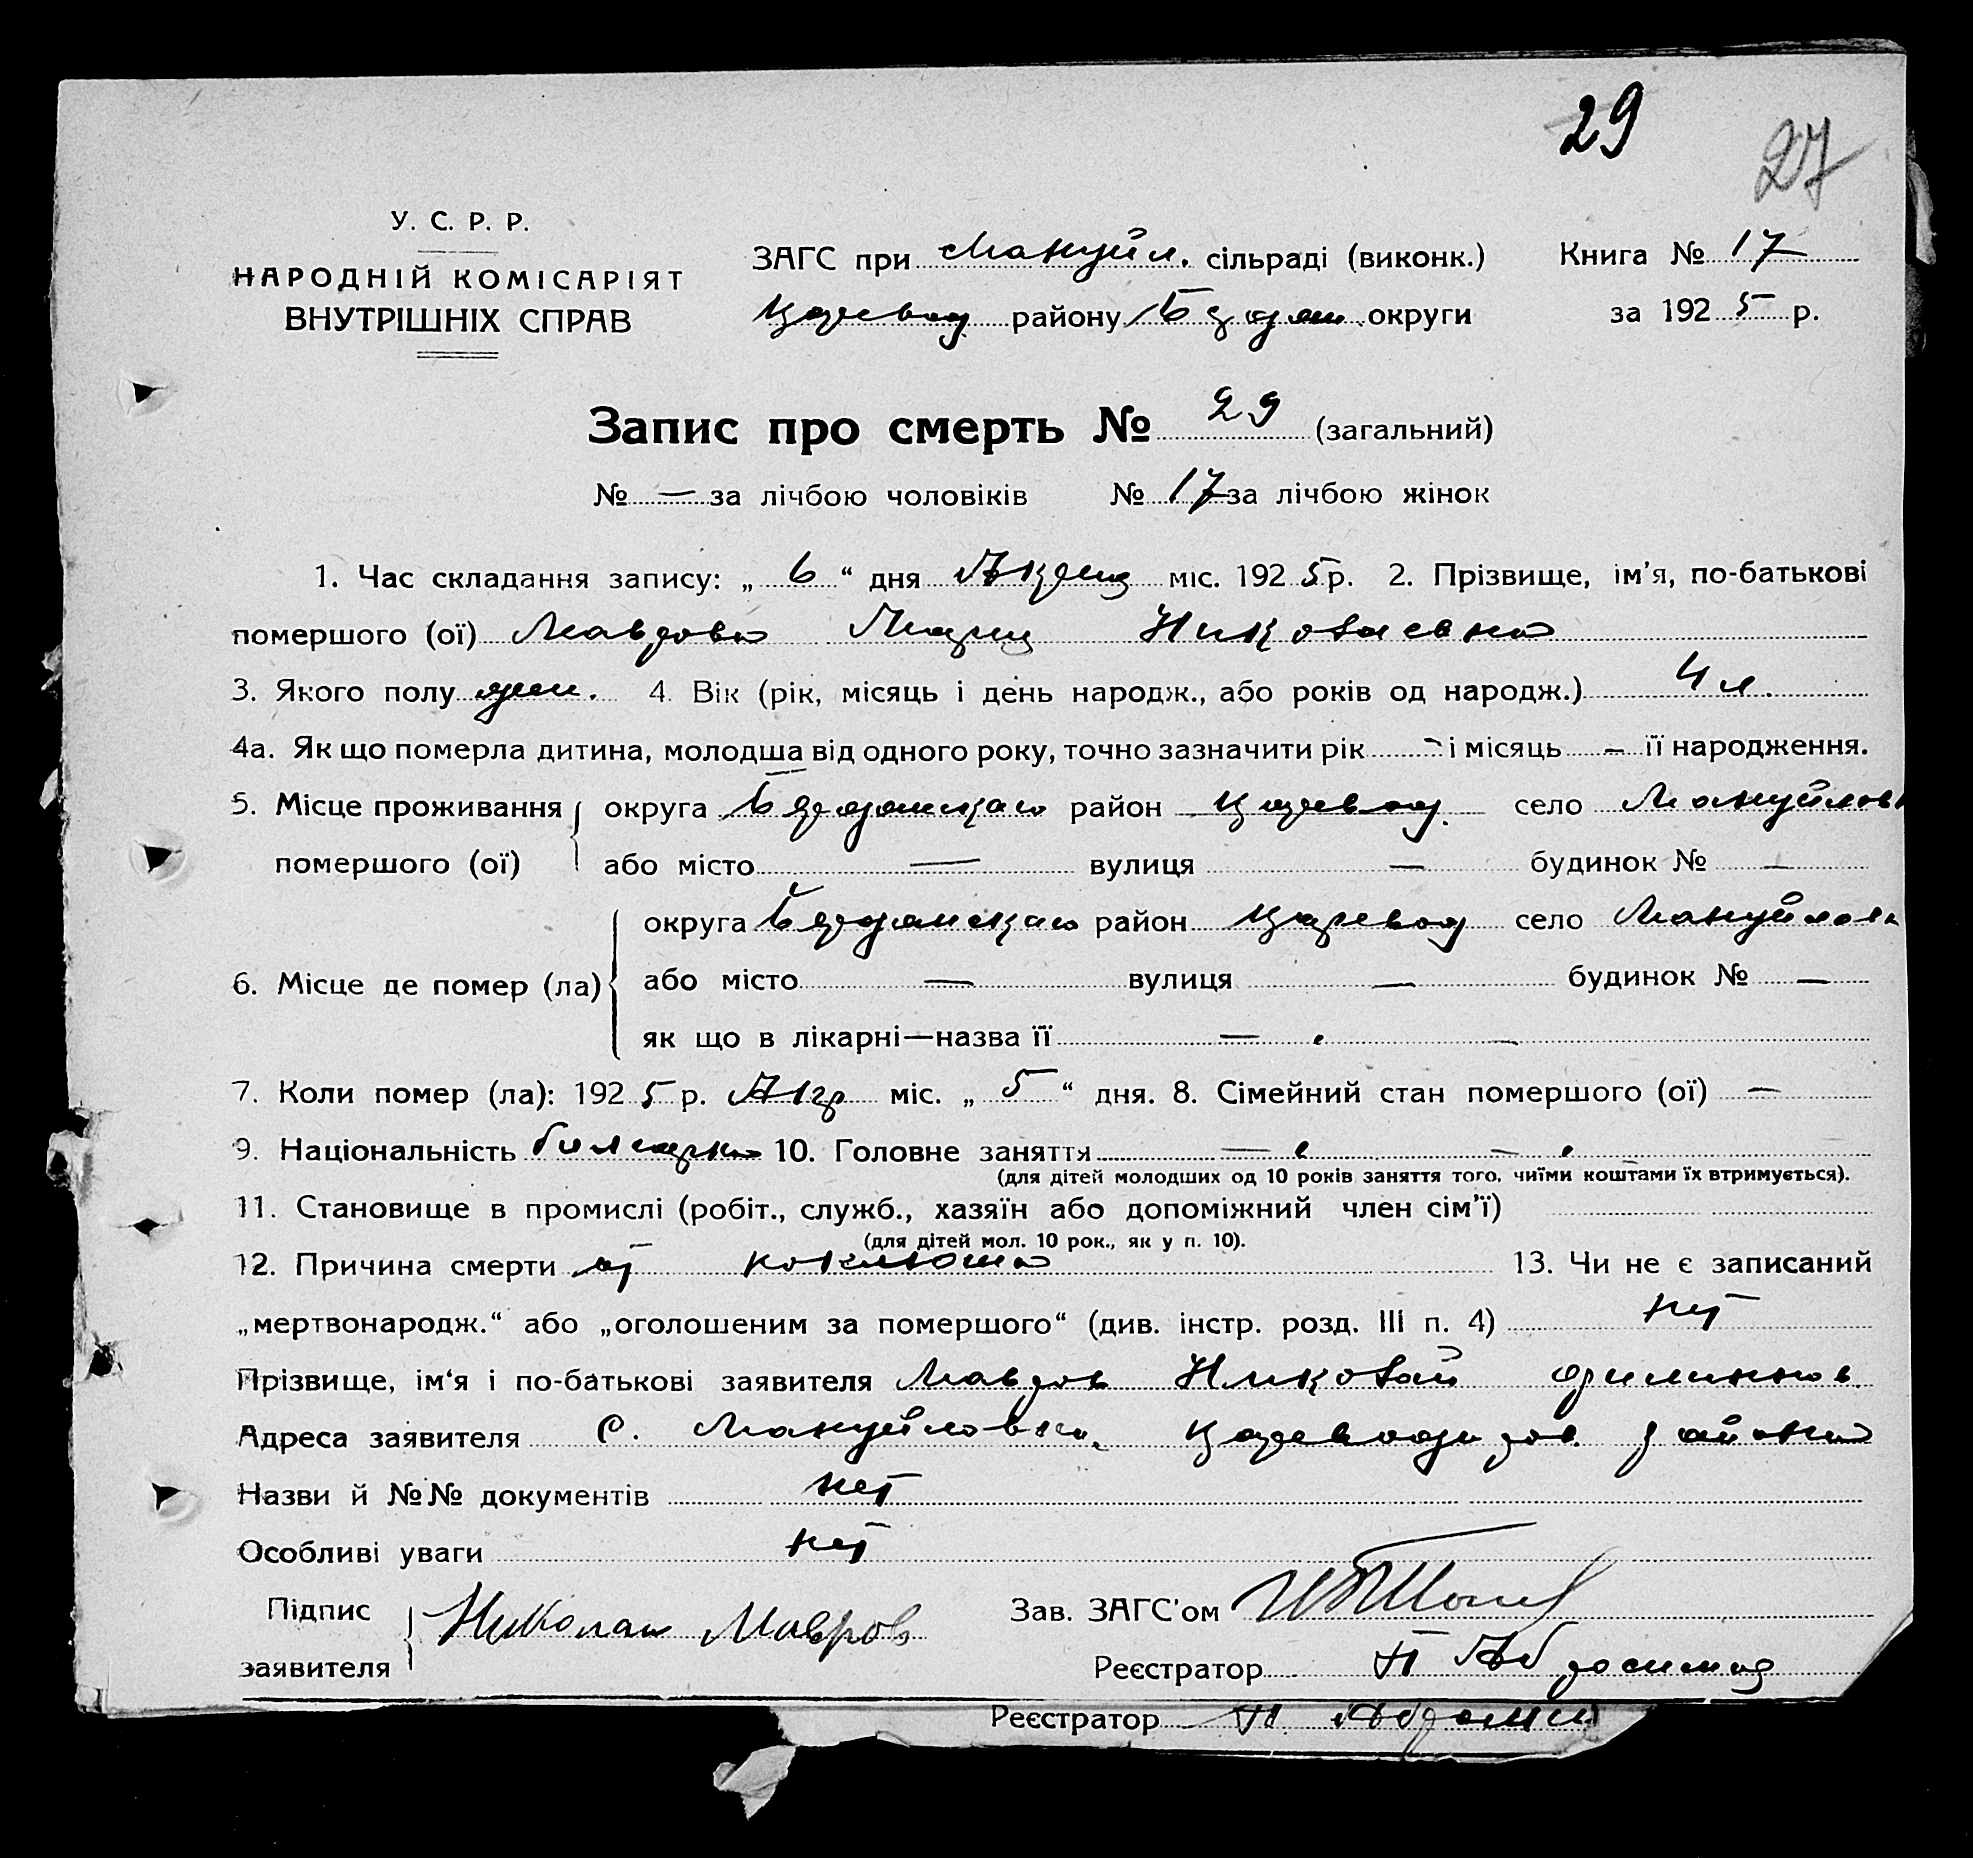 29
27
У. С. Р. Р.
НАРОДНІЙ КОМІСАРІЯТ
ВНУТРІШНІХ СПРАВ
ЗАГС при Мануйл. сільраді (виконк.)
Царевод. району Бердян. округи
Книга № 17
за 1925 р.
Запис про смерть № 29 (загальний)
№ — за лічбою чоловіків № 17 за лічбою жінок
1. Час складання запису: „ 6 “ дня міс. 1925 р. 2. Прізвище, ім’я, по-батькові
помершого (ої) Маврова Мария Николаевна
3. Якого полу жен. 4. Вік (рік, місяць і день народж., або років од народж.) 4 л.
4а. Як що померла дитина, молодша від одного року, точно зазначити рік - і місяць - її народження.
5. Місце проживання округа Бердянская район Царевод. село Мануйловк
помершого (ої) або місто — вулиця — будинок № —
округа Бердянская район Царевод село Мануйловк
6. Місце де помер (ла) або місто — вулиця — будинок № —
як що в лікарні—назва її — —
7. Коли помер (ла): 1925 р. міс. „ 5 “ дня. 8. Сімейний стан помершого (ої) —
9. Національність болгарка 10. Головне заняття — —
(для дітей молодших од 10 років заняття того, чиїми коштами їх втримується).
11. Становище в промислі (робіт., служб., хазяїн або допоміжний член сім’ї)
(для дітей мол. 10 рок., як у п. 10).
12. Причина смерти от коклюша 13. Чи не є записаний
„мертвонародж.“ або „оголошеним за помершого“ (див. інстр. розд. III п. 4) нет
Прізвище, ім‘я і по-батькові заявителя Мавров Николай
Адреса заявителя с. Мануйловка, района
Назви й №№ документів нет
Особливі уваги нет
Підпис
заявителя Николай Мавров
Зав. ЗАГС'ом
Реєстратор
Реєстратор